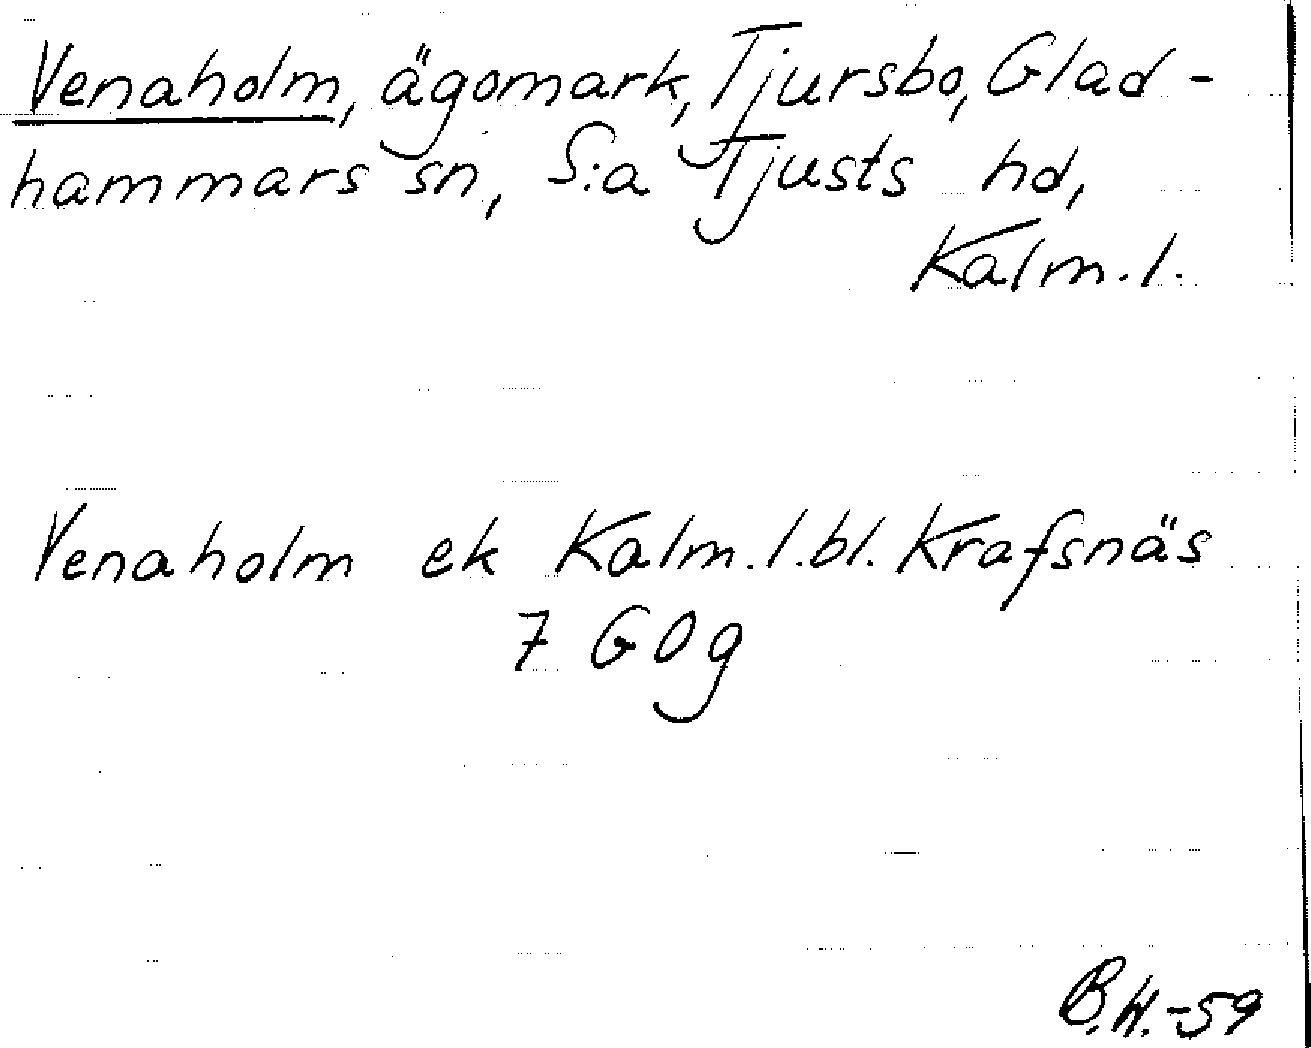 Venaholm, ägomark, Tjursbo, Glad-
hammars sn, S:a Tjusts hd,
Kalm. l.
Venaholm ek Kalm. l. bl. Krafsnäs
7 GOg
B.W.-59